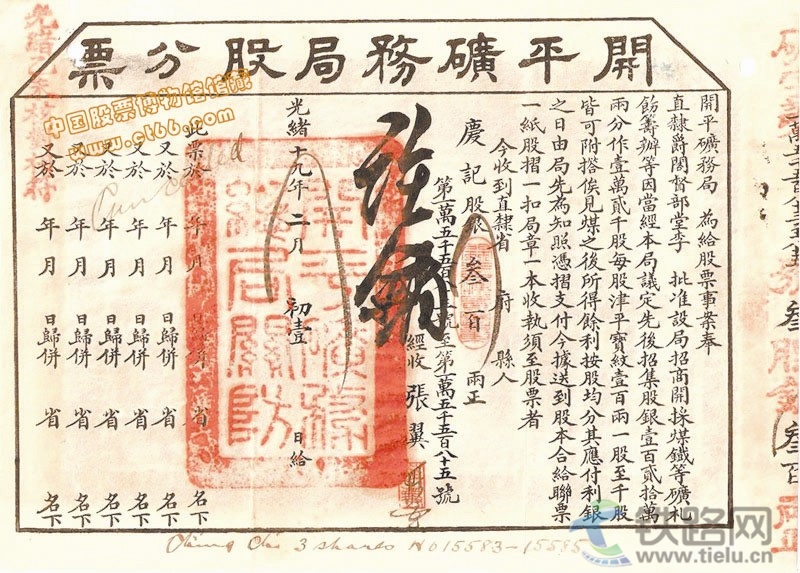 開平礦務局股分票
開平礦務局 為給股票事案奉
直隸爵閣督部堂李 批准設局招商開採煤鐵等礦札
飭籌辦等因當經本局議定先後招集股銀壹百貳拾萬
兩分作壹萬貳千股每股津平寶紋壹百兩一股至千股
皆可附搭俟見煤之後所得餘利按股均分其應付利銀
之日由局先為知照憑摺支付今據送到股本合給聯票
一紙股摺一扣局章一本收執須至股票者
今收到直隸省 府 縣人
慶記股銀 叁百 兩正
第一萬五千五百八十三號至第一萬五千五百八十五號
經收 張翼
註銷
光緒十九年二月 初壹 日給
此票於 年 月 日歸併 省 名下
又於 年 月 日歸併 省 名下
又於 年 月 日歸併 省 名下
又於 年 月 日歸併 省 名下
又於 年 月 日歸併 省 名下
又於 年 月 日歸併 省 名下
Cancelled
3 shares No 15583-15585
中国股票博物馆馆藏
www.cn66.com
铁路网
www.tielu.cn